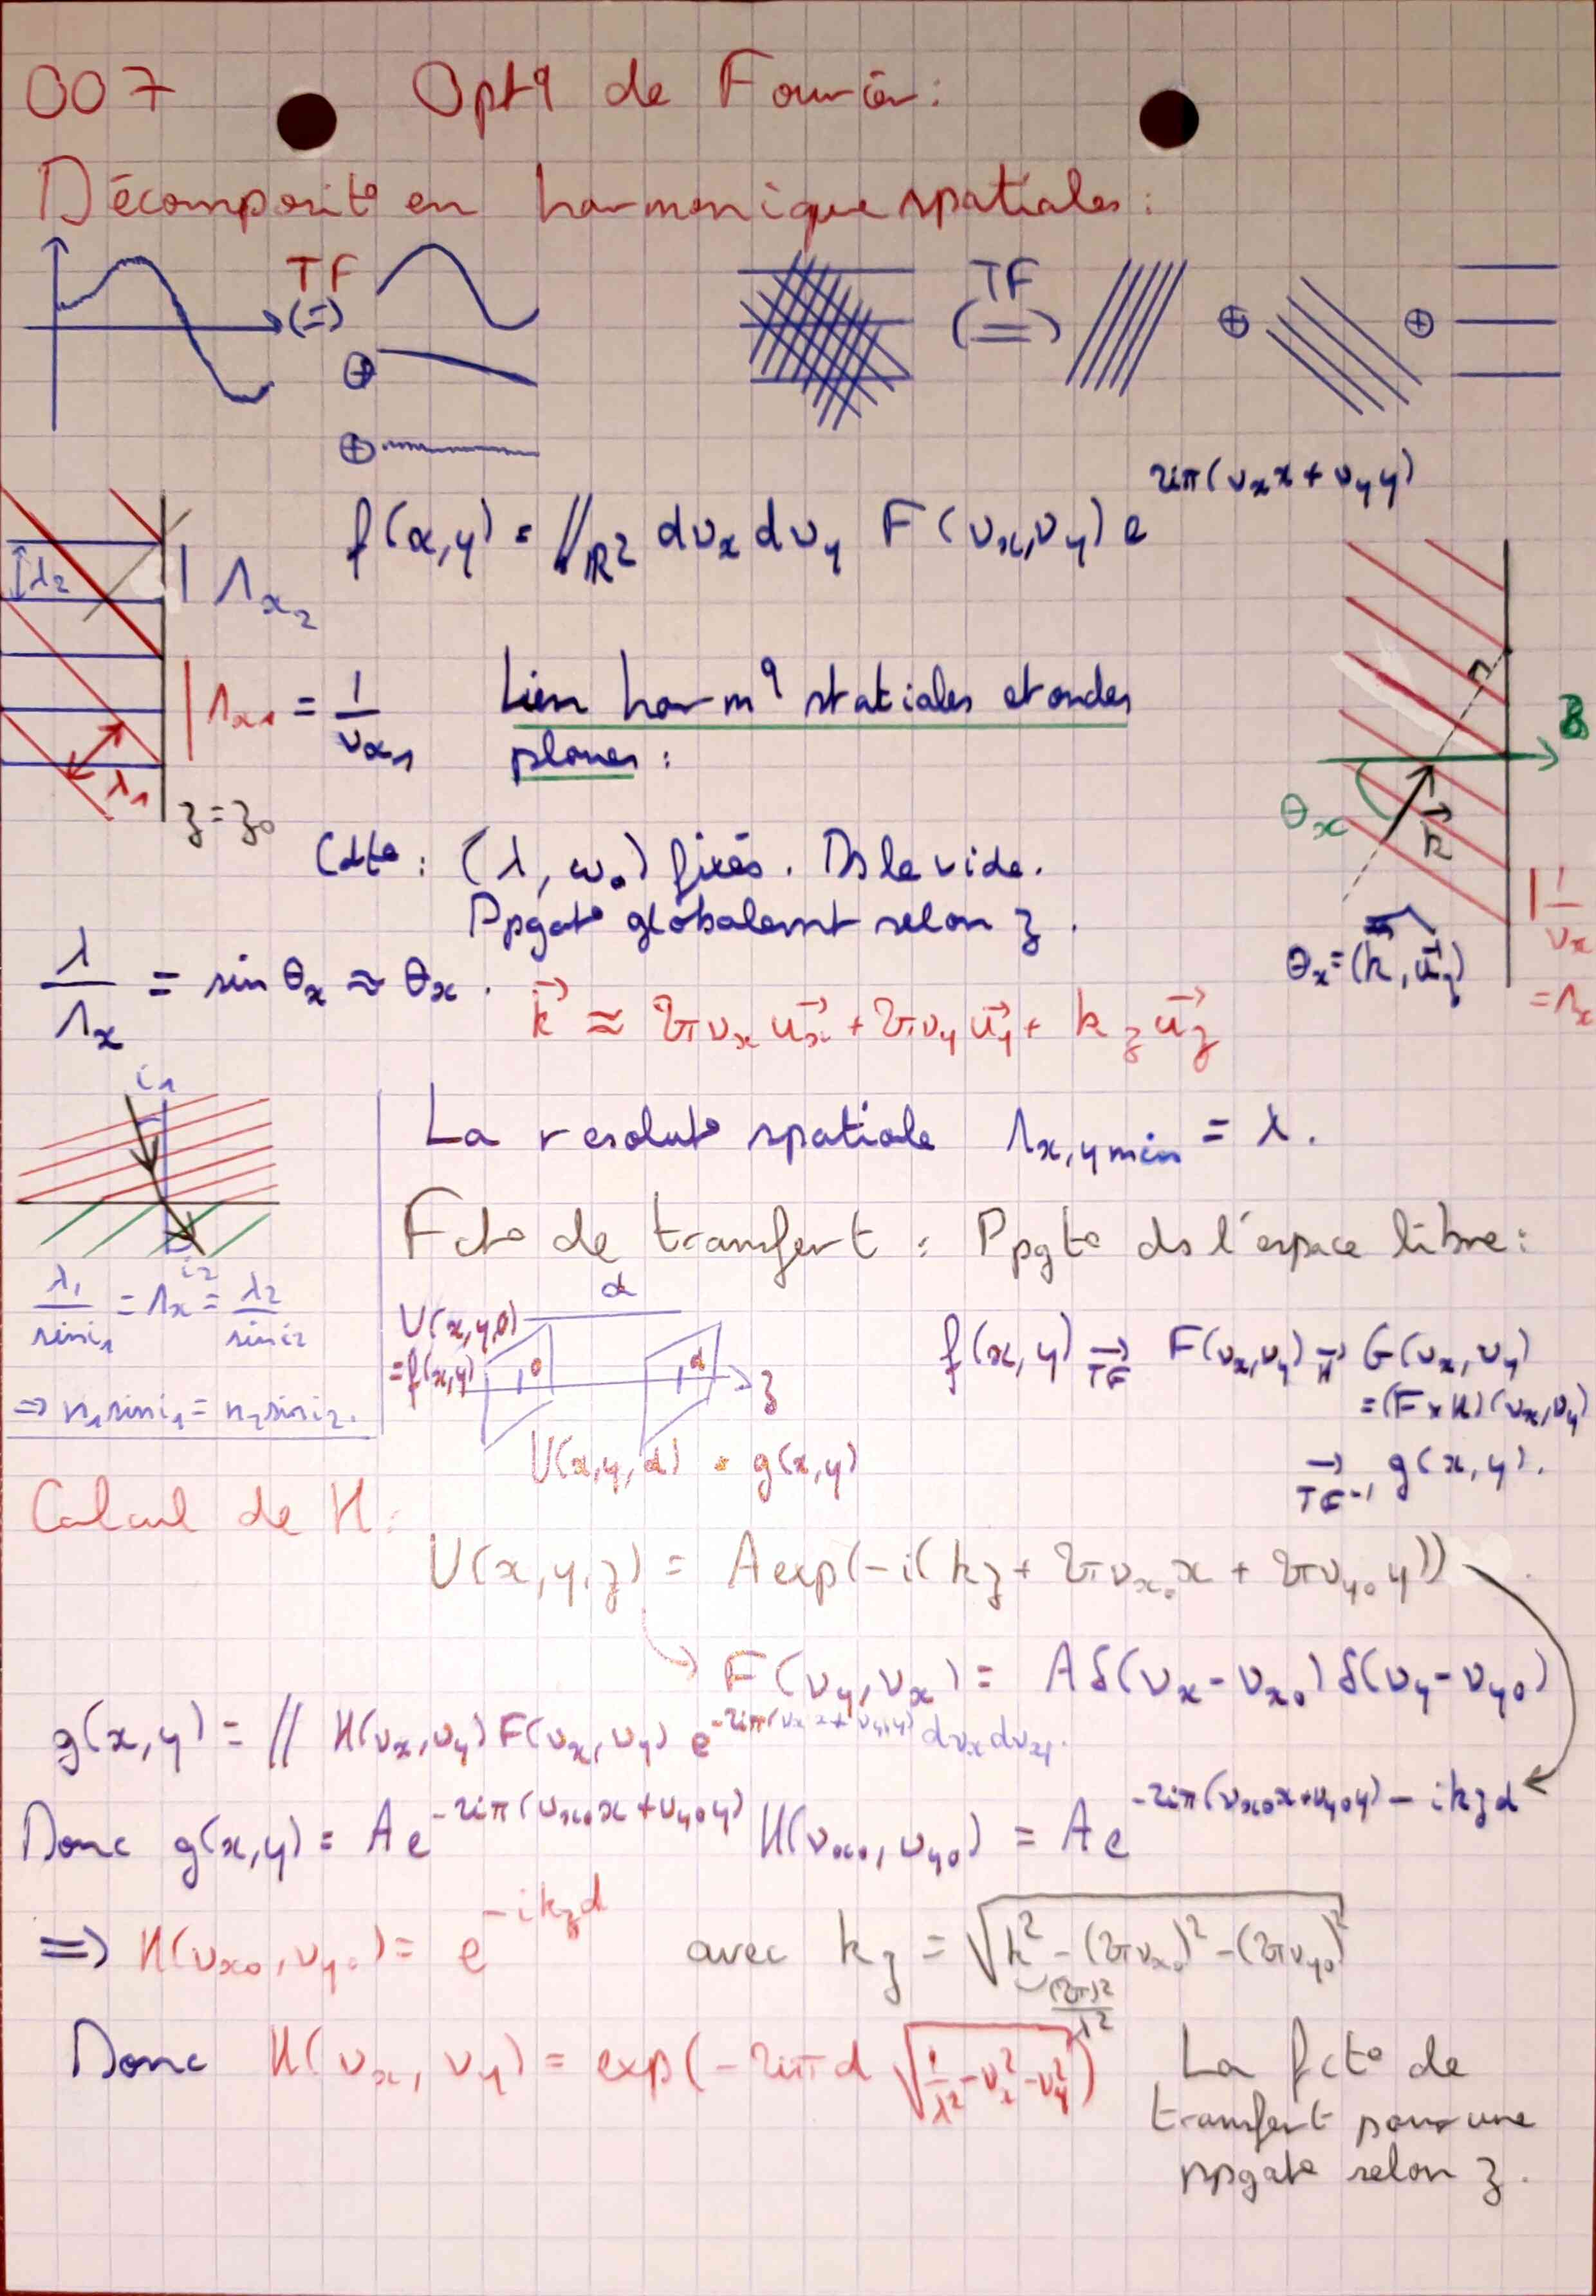 007 Opt9 de Fourier :
Décomposit° en harmonique spatiales :
TF
(=)
⊕
⊕
TF
(=) ⊕ ⊕
f(x,y) = ∬ℝ² dνx dνy F(νx,νy) e^{2iπ(νx x + νy y)}
λ2 | Λx2
| Λx1 = 1/νx1
λ1
z = z0
Lien harm9 statiales et ondes
planes :
θx
k⃗
| 1/νx
= Λx
θx = (k⃗, u⃗z)
Cdt° : (λ, ω0) fixés. Ds le vide.
Ppgat° globalemnt selon z.
λ/Λx = sin θx ≈ θx.
k⃗ ≈ 2πνx u⃗x + 2πνy u⃗y + kz u⃗z
i1
i2
λ1/sini1 = Λx = λ2/sini2
=> n1 sini1 = n2 sini2.
La resolut° spatiale Λx,y min = λ.
Fct° de transfert : Ppgt° ds l'espace libre :
d
U(x,y,0)
= f(x,y) 0 d z
U(x,y,d) = g(x,y)
f(x,y) →TF F(νx,νy) →H G(νx,νy)
= (F×H)(νx,νy)
→TF-1 g(x,y).
Calcul de H :
U(x,y,z) = A exp(-i(kz + 2πνx0 x + 2πνy0 y))
F(νy,νx) = A δ(νx-νx0) δ(νy-νy0)
g(x,y) = ∬ H(νx,νy) F(νx,νy) e^{-2iπ(νx x + νy y)} dνx dνy.
Donc g(x,y) = A e^{-2iπ(νx0 x + νy0 y)} H(νx0,νy0) = A e^{-2iπ(νx0 x + νy0 y) - ikz d}
=> H(νx0,νy0) = e^{-ikz d} avec kz = √(k² - (2πνx0)² - (2πνy0)²)
(2π)²/λ²
Donc H(νx, νy) = exp(-2iπd √(1/λ² - νx² - νy²))
La fct° de
transfert pour une
ppgat° selon z.